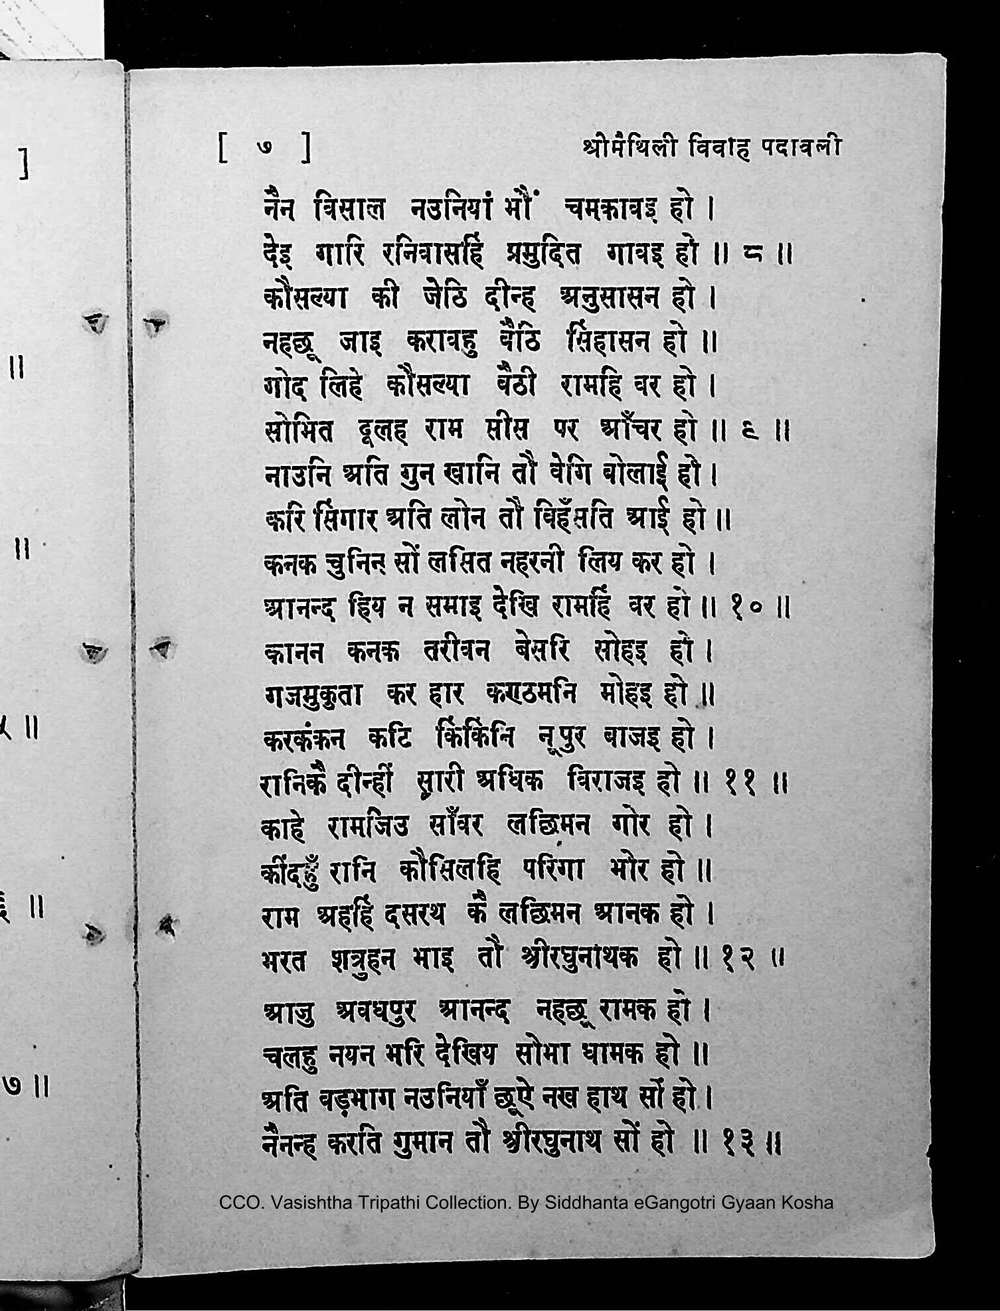 [ ७ ] श्रीमैथिली विवाह पदावली
नैन विसाल नउनियां भौं चमकावइ हो ।
देइ गारि रनिवासहिं प्रमुदित गावइ हो ॥ ८ ॥
कौसल्या की जेठि दीन्ह अनुसासन हो ।
नहछू जाइ करावहु बैठि सिंहासन हो ॥
गोद लिहे कौसल्या बैठी रामहि वर हो ।
सोभित दूलह राम सीस पर आँचर हो ॥ ९ ॥
नाउनि अति गुन खानि तौ वेगि बोलाई हो ।
करि सिंगार अति लोन तौ विहँसति आई हो ॥
कनक चुनिन सों लसित नहरनी लिय कर हो ।
आनन्द हिय न समाइ देखि रामहिं वर हो ॥ १० ॥
कानन कनक तरीवन बेसरि सोहइ हो ।
गजमुकुता कर हार कण्ठमनि मोहइ हो ॥
करकंकन कटि किंकिंनि नूपुर बाजइ हो ।
रानिकै दीन्हीं सारी अधिक विराजइ हो ॥ ११ ॥
काहे रामजिउ साँवर लछिमन गोर हो ।
कींदहुँ रानि कौसिलहि परिगा भोर हो ॥
राम अहहिं दसरथ कै लछिमन आनक हो ।
भरत शत्रुहन भाइ तौ श्रीरघुनाथक हो ॥ १२ ॥
आजु अवधपुर आनन्द नहछू रामक हो ।
चलहु नयन भरि देखिय सोभा धामक हो ॥
अति बड़भाग नउनियाँ छूऐ नख हाथ सों हो ।
नैनन्ह करति गुमान तौ श्रीरघुनाथ सों हो ॥ १३ ॥
CCO. Vasishtha Tripathi Collection. By Siddhanta eGangotri Gyaan Kosha
]
॥
॥
५ ॥
६ ॥
७ ॥